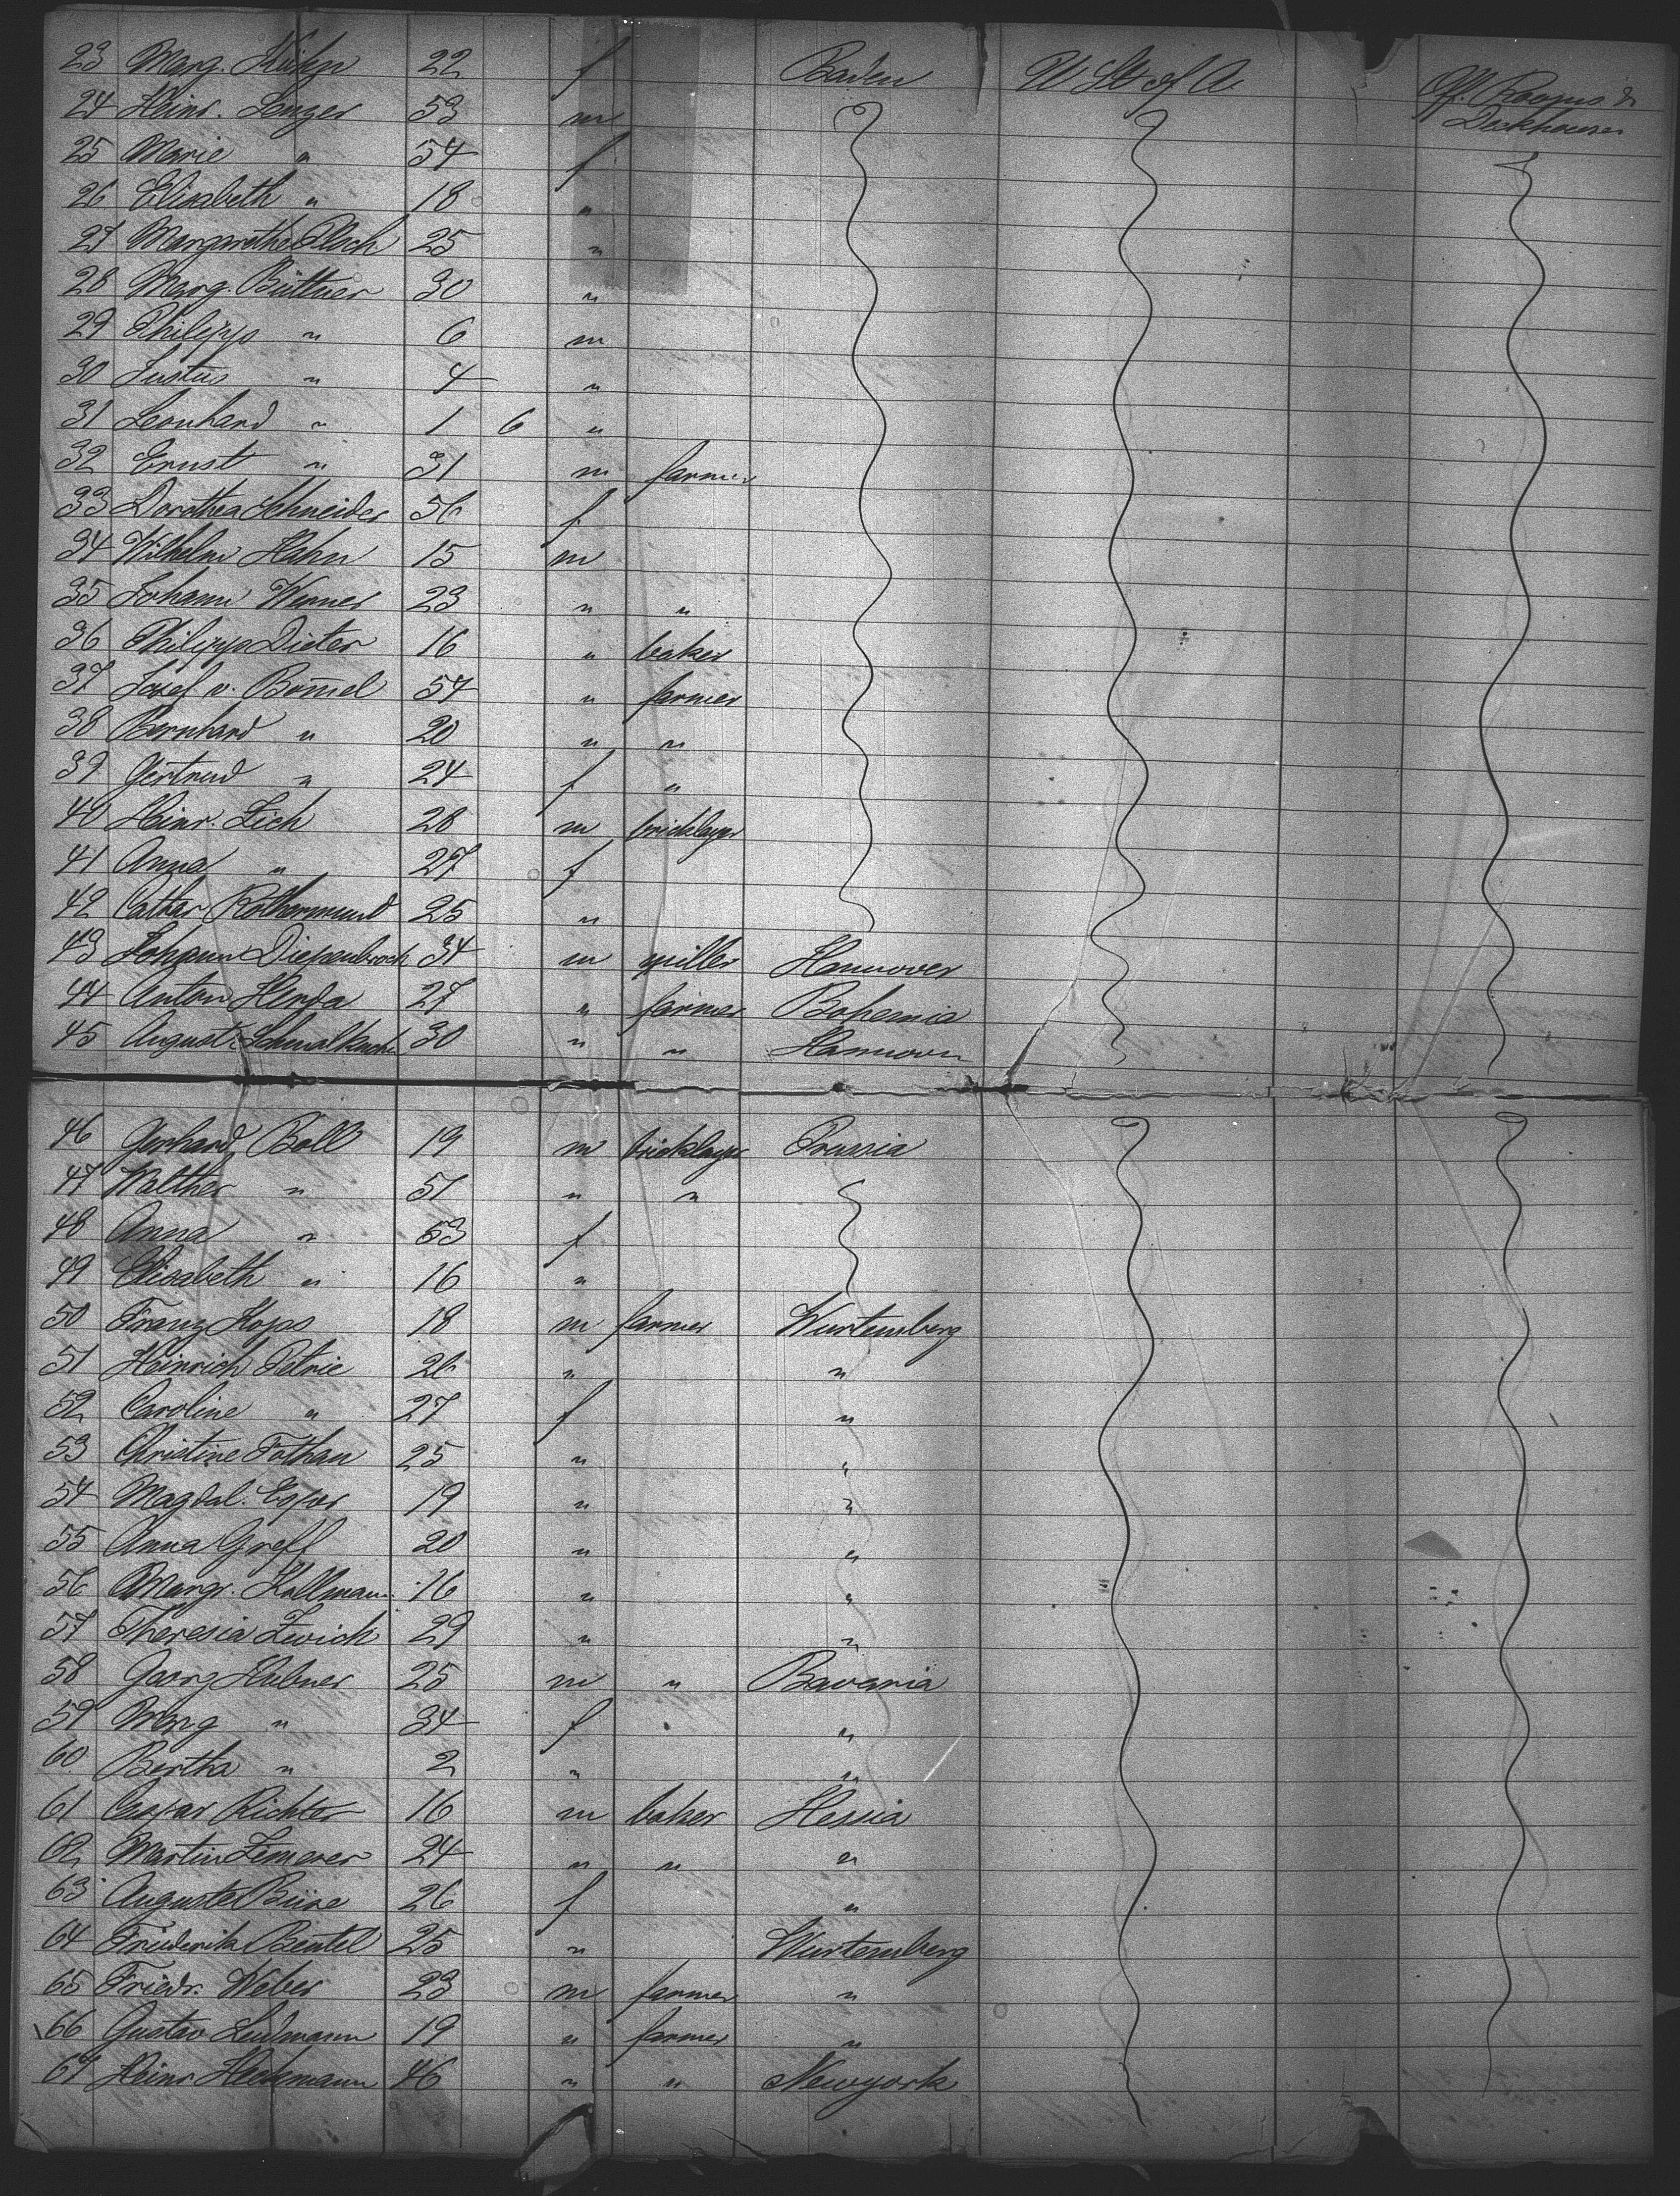 23 Marg. Kühn 22 f Baden U St of A. Off. Rooms &
Deckhouse
24 Heinr. Lenger 53 m
25 Marie " 54 f
26 Elisabeth " 18 "
27 Margarethe 25 "
28 Marg. Büttner 30 "
29 Philipp " 6 m
30 Justus " 4 "
31 Leonhard " 1 6 "
32 Ernst " 31 m farmer
33 Dorothea Schneider 56 f
34 Wilhelm Hahn 15 m
35 Johann Werner 23 " "
36 Philipp Dieter 16 " baker
37 Josef v. Bom̄el 57 " farmer
38 Bernhard " 20 " "
39 Gertrud " 24 f "
40 Heinr. Zich 28 m bricklayer
41 Anna " 27 f
42 Cathar Rothermund 25 "
43 Johann Diepenbrock 34 m miller Hannover
44 Anton 27 " farmer Bohemia
45 August 30 " " Hannover
46 Gerhard Boll 19 m bricklayer Prussia
47 Walther " 51 " "
48 Anna " 53 f
49 Elisabeth " 16 "
50 Franz Hops 18 m farmer Wurtemberg
51 Heinrich Petrie 26 " "
52 Caroline " 27 f "
53 Christine Fothan 25 " "
54 Magdal. 19 " "
55 Anna Greff 20 " "
56 Margr. Kallmann 16 " "
57 Theresia Zwick 29 " "
58 Georg Hubner 25 m " Bavaria
59 Marg " 34 f "
60 Bertha " 2 " "
61 Caspar Richter 16 m baker Hessia
62 Martin Zimerer 24 " " "
63 Auguste 26 f "
64 Friederika Beutel 25 " Wurtemberg
65 Friedr. Weber 23 m farmer "
66 Gustav Ludmann 19 " farmer "
67 Heinr Heckmann 46 " " Newyork